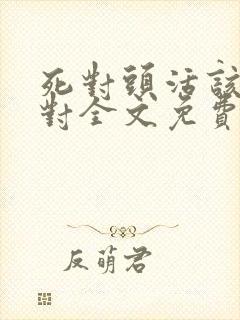 死對頭活該
對全文免費
反萌君